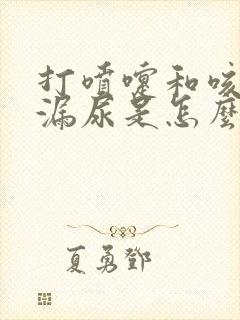 打喷嚏和咳
漏尿是怎麼
夏勇鄧